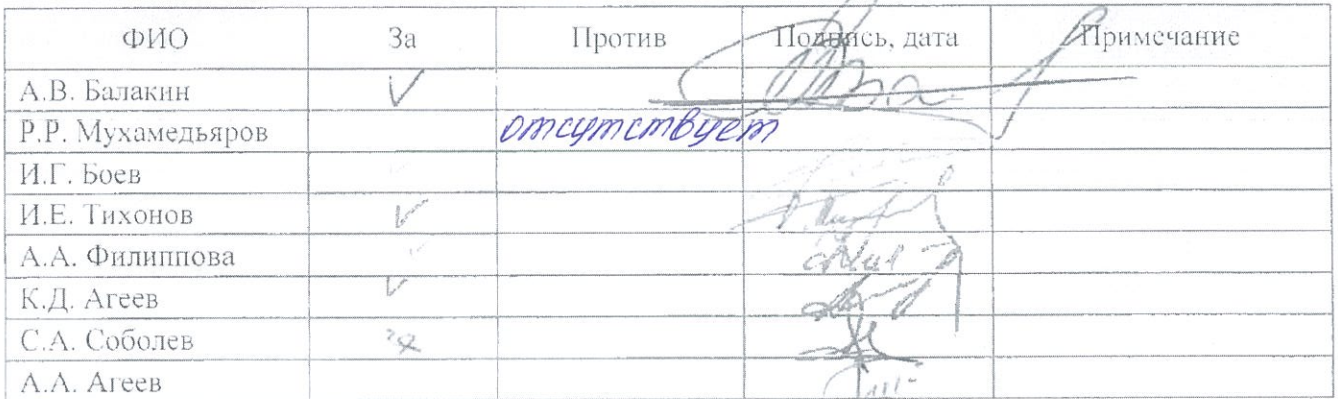 ФИО За Против Подпись, дата Примечание
А.В. Балакин
Р.Р. Мухамедьяров отсутствует
И.Г. Боев
И.Е. Тихонов
А.А. Филиппова
К.Д. Агеев
С.А. Соболев
А.А. Агеев